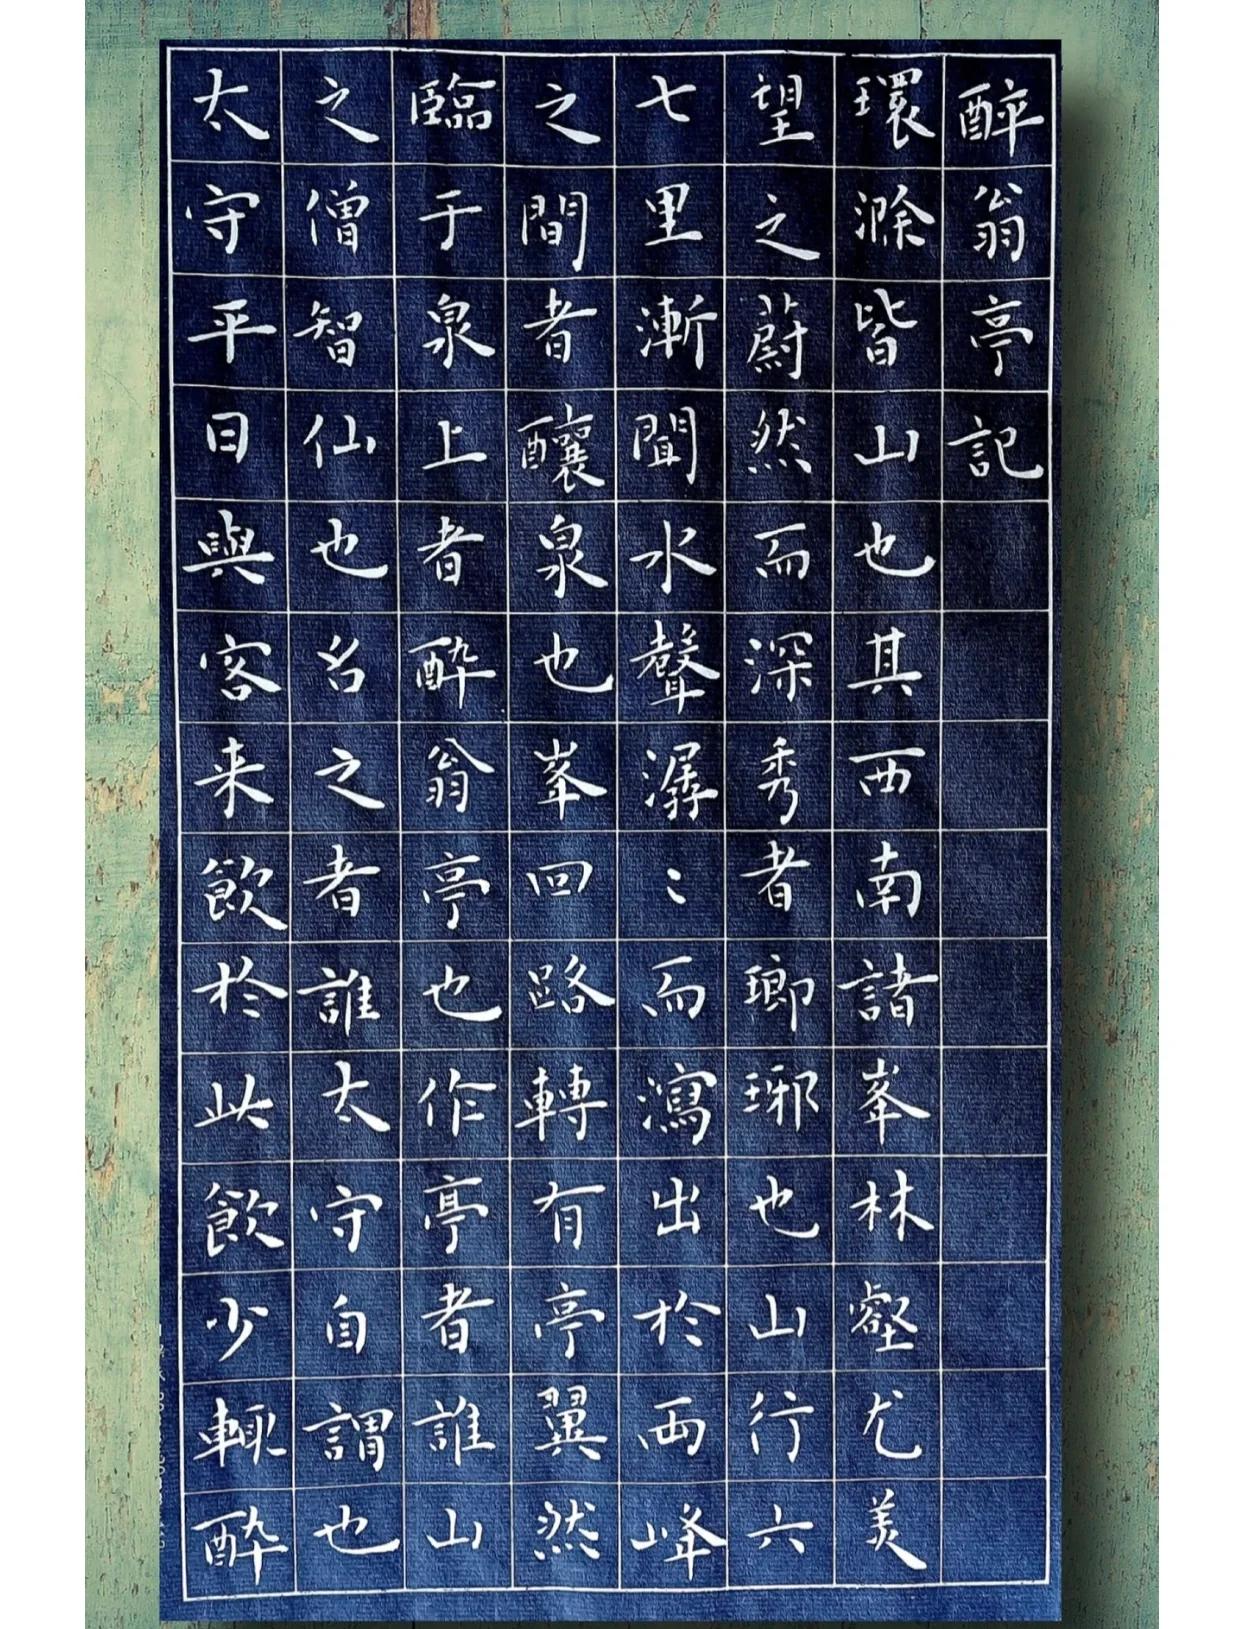 醉翁亭記
環滁皆山也其西南諸峯林壑尤美
望之蔚然而深秀者瑯琊也山行六
七里漸聞水聲潺〻而瀉出於兩峰
之間者釀泉也峯回路轉有亭翼然
臨于泉上者醉翁亭也作亭者誰山
之僧智仙也名之者誰太守自謂也
太守平日與客来飲於此飲少輒醉